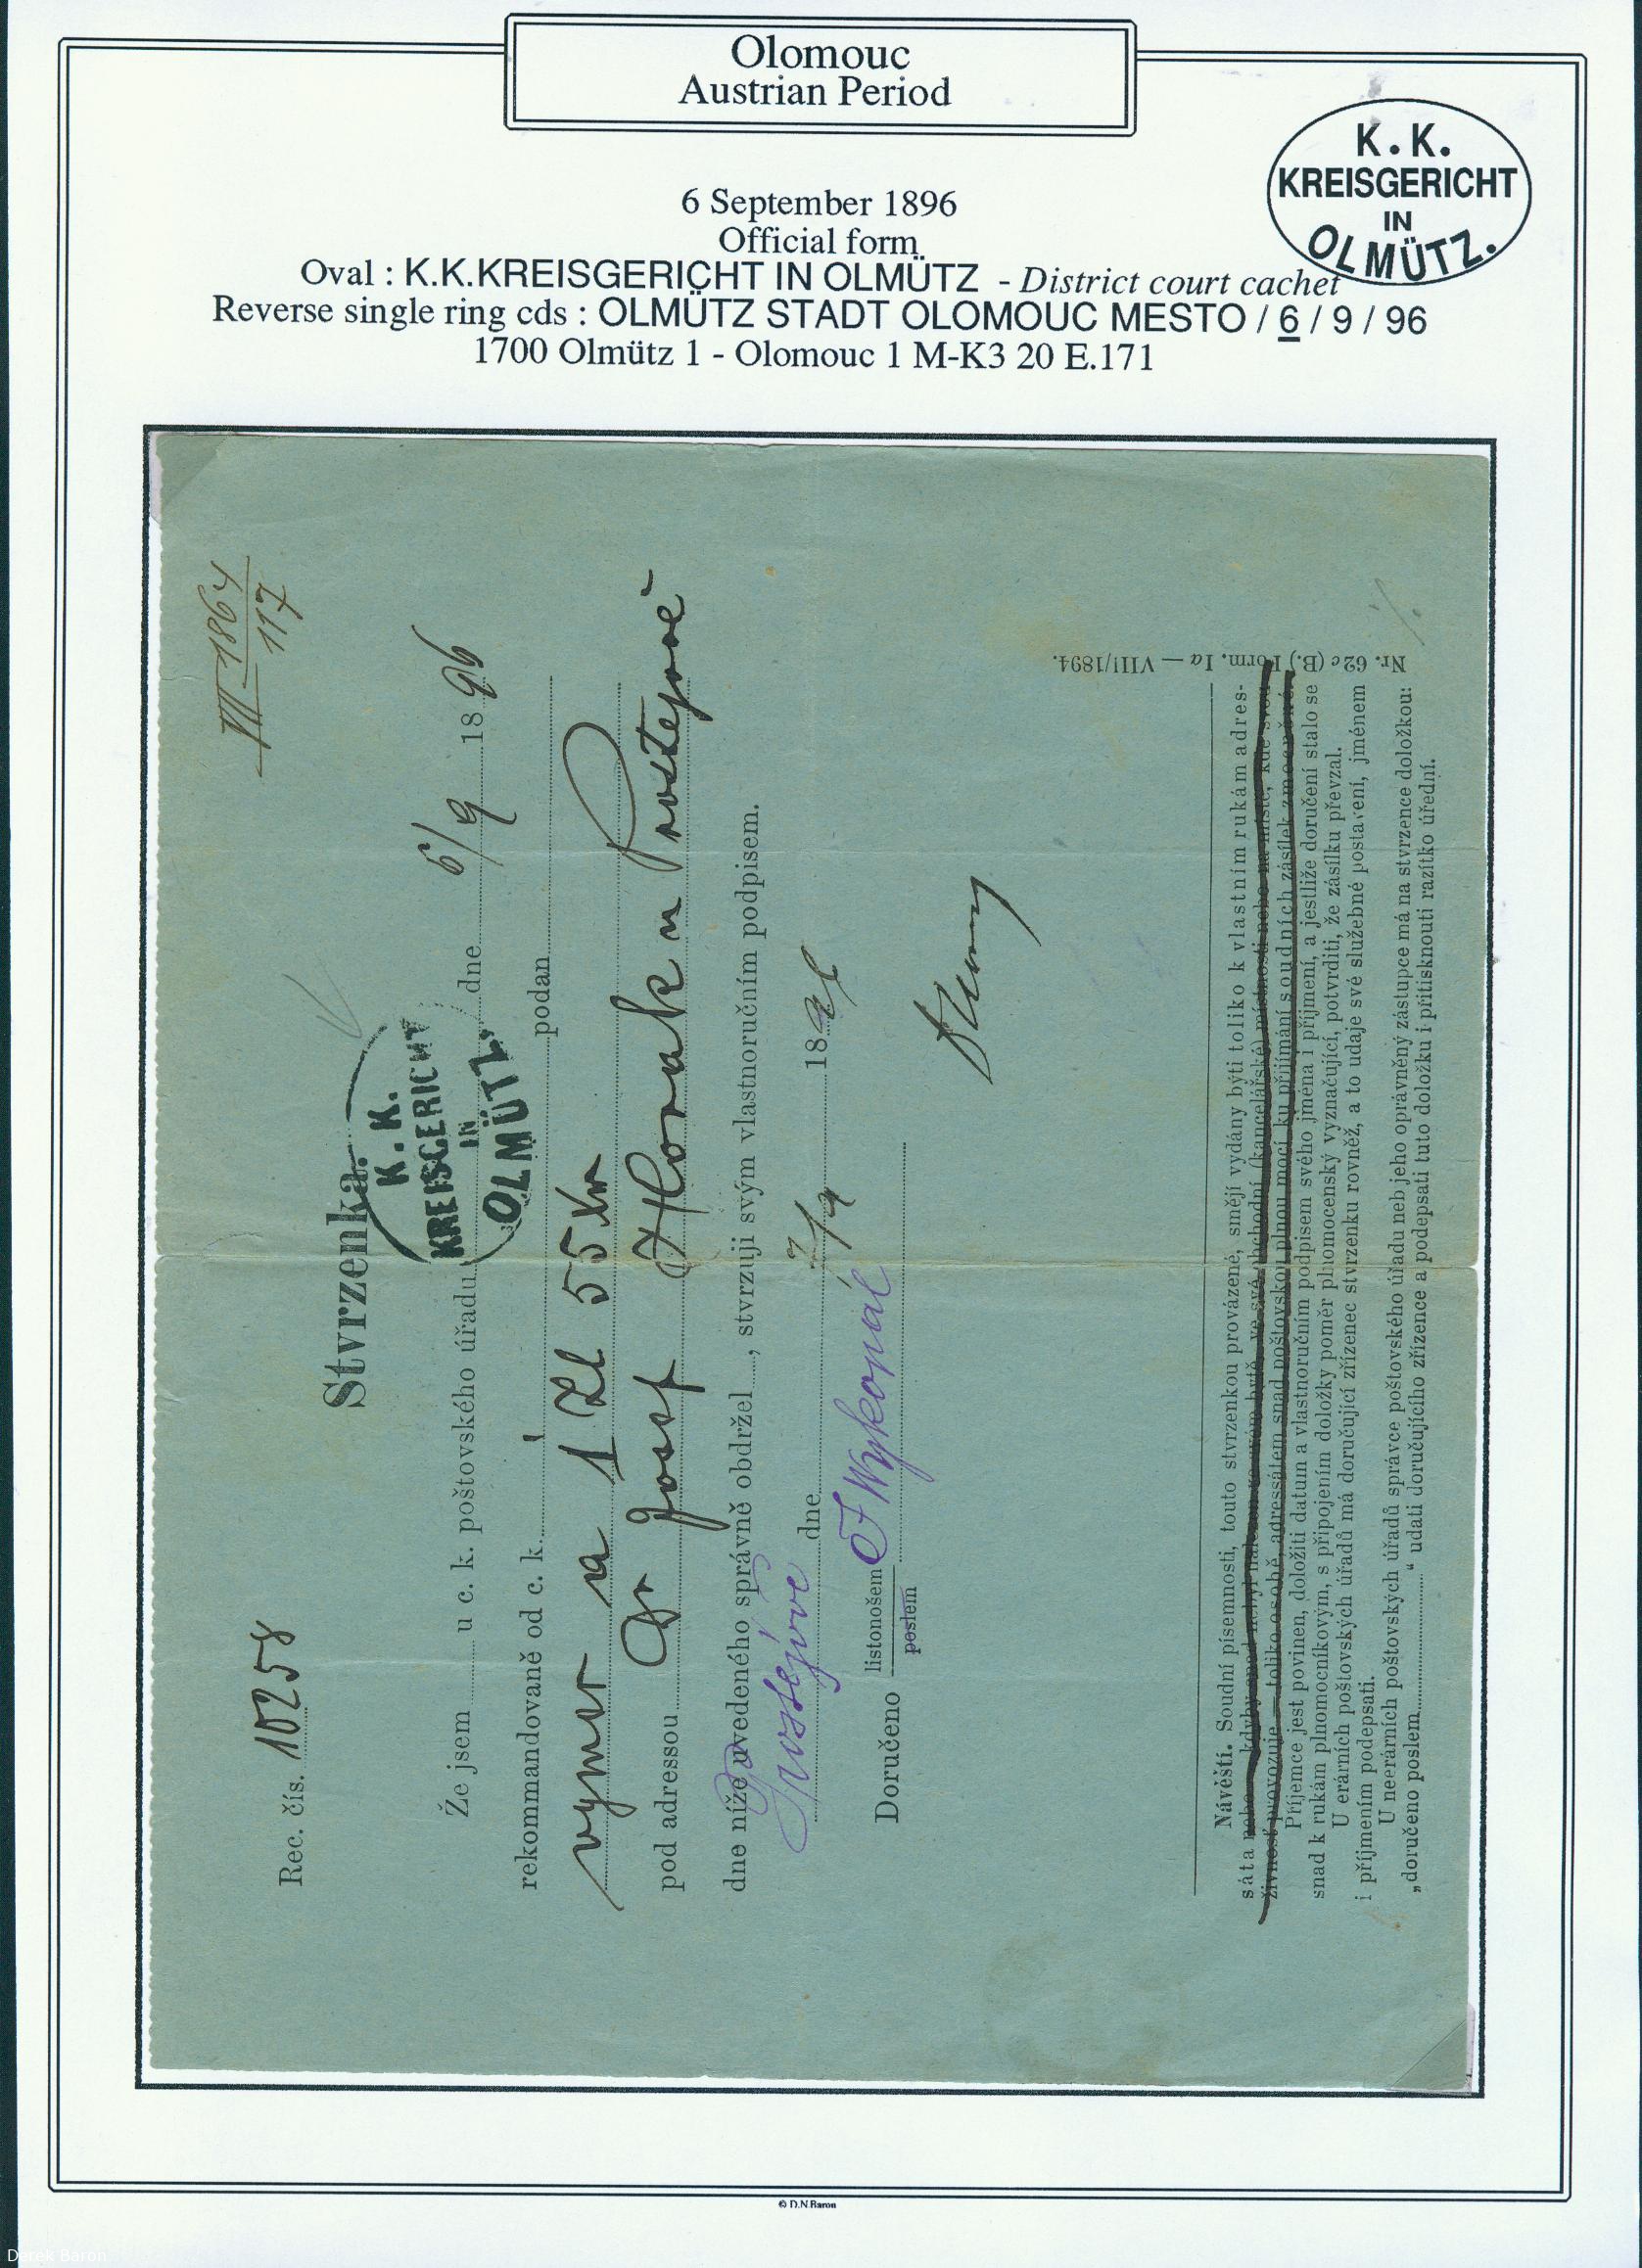 Olomouc
Austrian Period
K.K.
KREISGERICHT
IN
OLMÜTZ.
6 September 1896
Official form
Oval : K.K.KREISGERICHT IN OLMÜTZ - District court cachet
Reverse single ring cds : OLMÜTZ STADT OLOMOUC MESTO / 6 / 9 / 96
1700 Olmütz 1 - Olomouc 1 M-K3 20 E.171
Rec. čís. 10258
VII 1864
117
Stvrzenka.
K. K.
KREISGERICHT
IN
OLMÜTZ.
Že jsem u c. k. poštovského úřadu dne 6/9 1896
rekommandovaně od c. k. podan
výměr a 1 Zl 55 kr
pod adressou Dr Josef Horak u Prostějově
dne níže uvedeného správně obdržel , stvrzuji svým vlastnoručním podpisem.
Prostějově dne 7/9 1896
Doručeno listonošem F Wykopál
poslem
Návěští. Soudní písemnosti, touto stvrzenkou provázené, smějí vydány býti toliko k vlastním rukám adres-
sáta nebo kdyby snad nebyl nalezen ve svém bytě, ve své obchodní (kancelářské) místnosti nebo na místě, kde svou
živnosť provozuje — toliko osobě, adressátem snad poštovskou plnou mocí ku přijímání soudních zásilek zmocněné.
Příjemce jest povinen, doložiti datum a vlastnoručním podpisem svého jména i příjmení, a jestliže doručení stalo se
snad k rukám plnomocníkovým, s připojením doložky poměr plnomocenský vyznačující, potvrditi, že zásilku převzal.
U erárních poštovských úřadů má doručující zřízenec stvrzenku rovněž, a to udaje své služebné postavení, jménem
i příjmením podepsati.
U neerárních poštovských úřadů správce poštovského úřadu neb jeho oprávněný zástupce má na stvrzence doložkou:
„doručeno poslem “ udati doručujícího zřízence a podepsati tuto doložku i přitisknouti razítko úřední.
Nr. 62c (B.) Form. Ia — VIII/1894.
© D.N Baron
Derek Baron